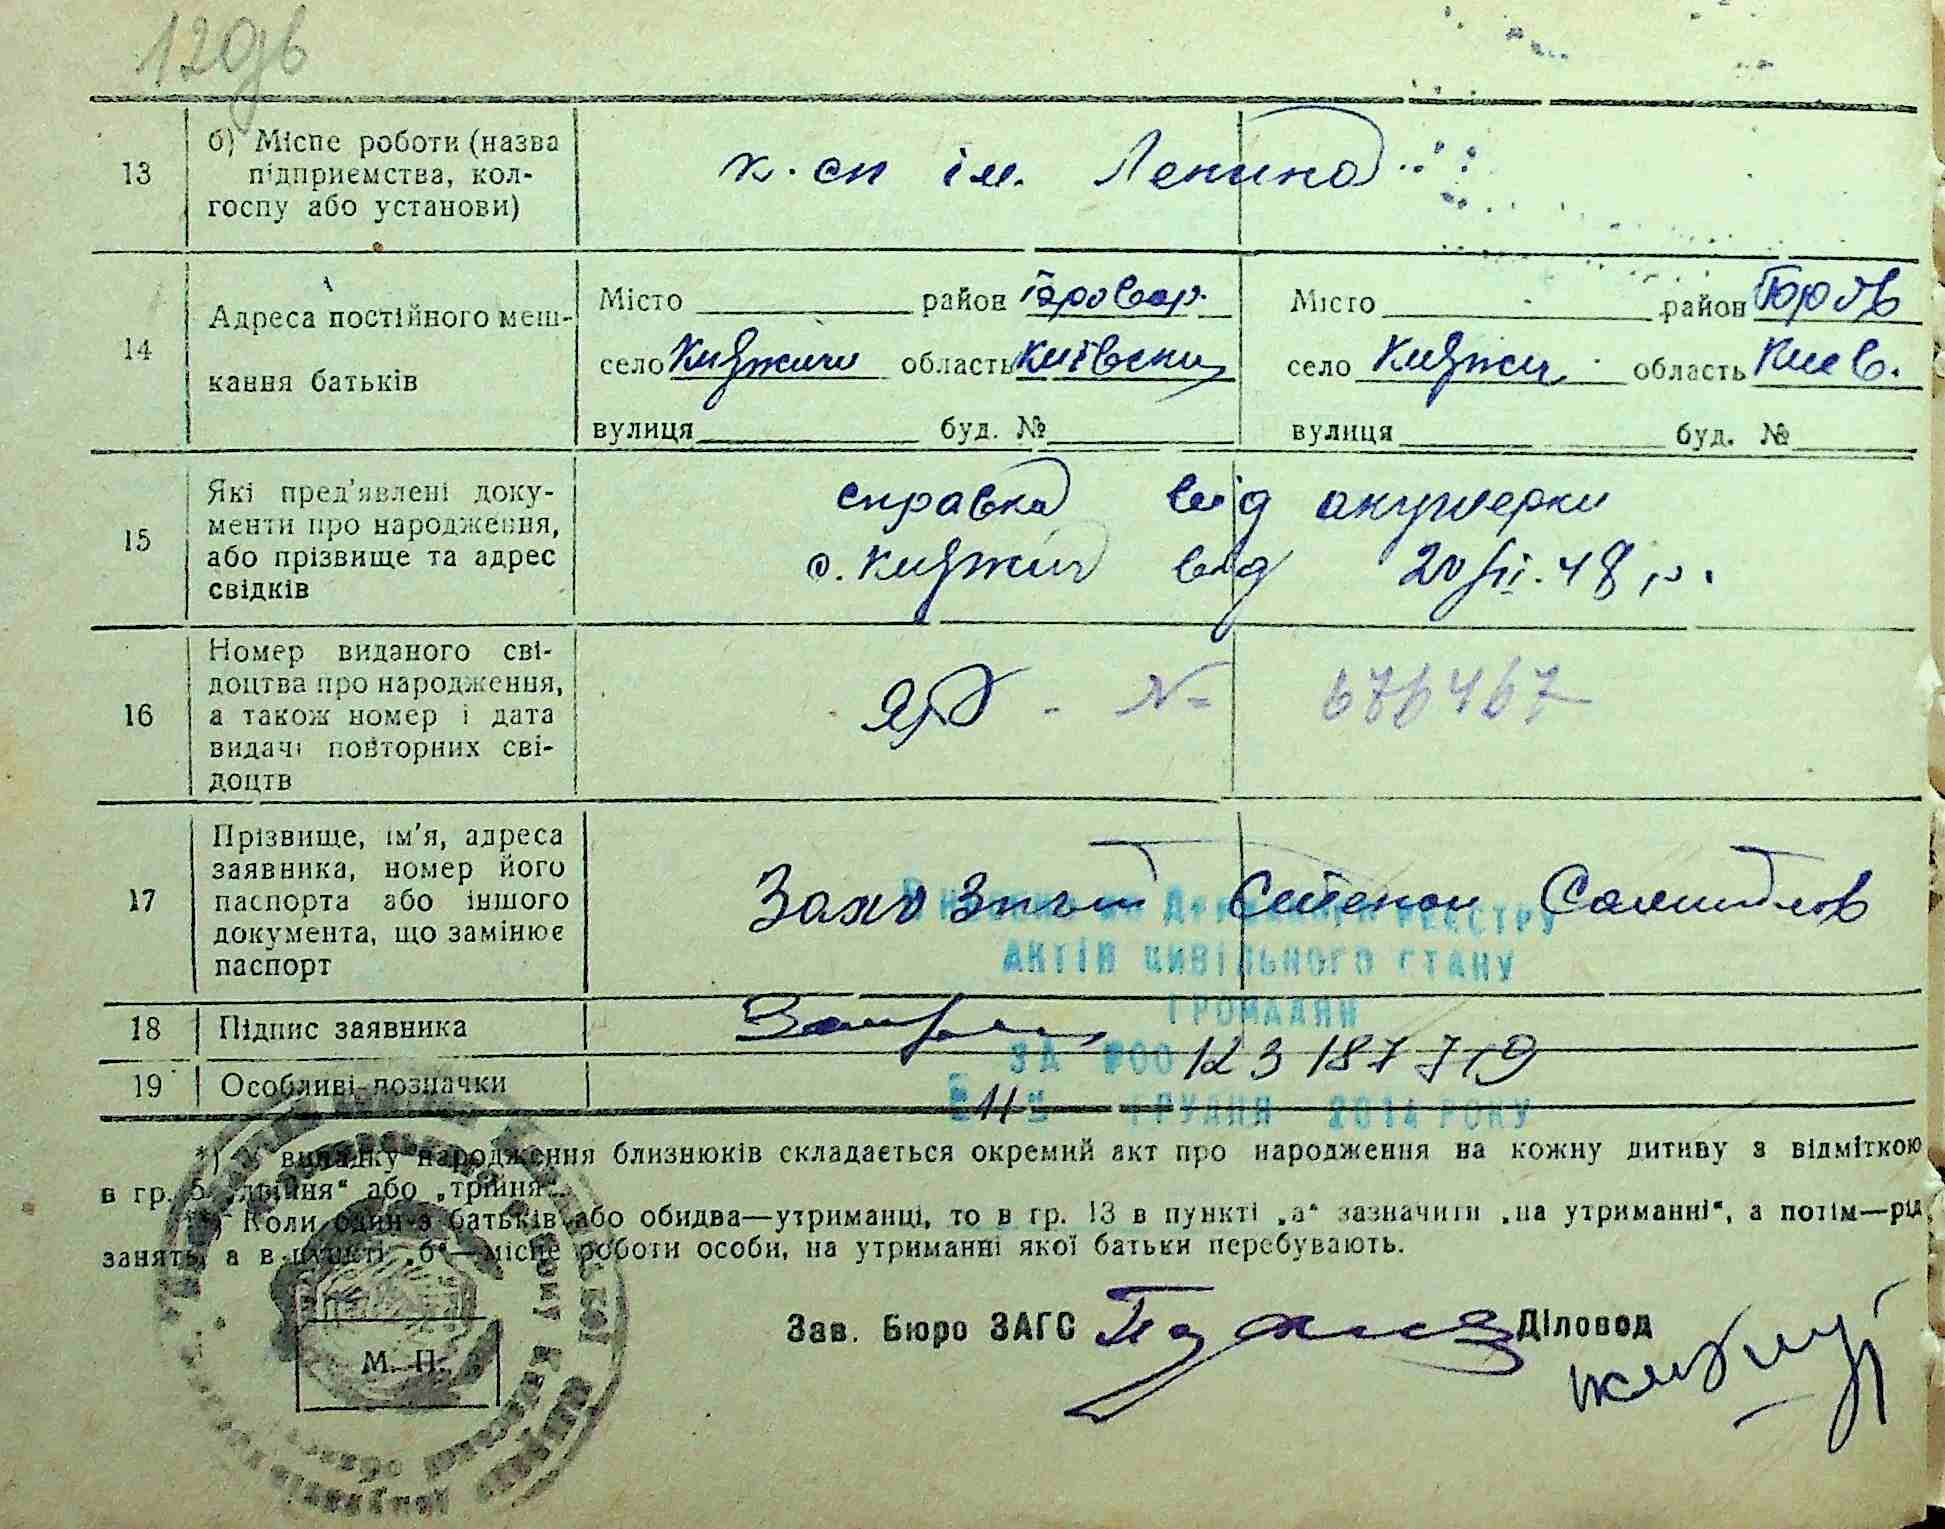 120зв
13
б) Місце роботи (назва
підприємства, кол-
госпу або установи)
к. сп ім. Ленина
14
Адреса постійного меш-
кання батьків
Місто район Бровар.
село Княжичи область Київськи
вулиця буд. №
Місто район Бров
село Княжи область Киев.
вулиця буд. №
15
Які пред'явлені доку-
менти про народження,
або прізвище та адрес
свідків
справка від акушерки
с. Княжич від 48 р.
16
Номер виданого сві-
доцтва про народження,
а також номер і дата
видачі повторних сві-
доцтв
№ 676467
17
Прізвище, ім'я, адреса
заявника, номер його
паспорта або іншого
документа, що замінює
паспорт
Державного РЕЄСТРУ
АКТІВ ЦИВІЛЬНОГО СТАНУ
ГРОМАДЯН
18
Підпис заявника
ЗА №00123187719
19
Особливі позначки
ГРУДНЯ 2014 РОКУ
*) У випадку народження близнюків складається окремий акт про народження на кожну дитину з відміткою
в гр. 5 „двійня“ або „трійня“.
Коли один з батьків або обидва—утриманці, то в гр. 13 в пункті „а“ зазначити „на утриманні“, а потім—рід
занять, а в пункті „б“—місце роботи особи, на утриманні якої батьки перебувають.
Зав. Бюро ЗАГС Діловод
М. П.